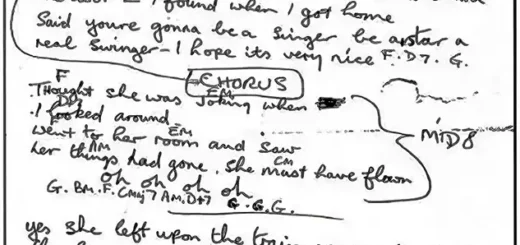 I found when I got home
Said youre gonna be a singer be a star a
real swinger - I hope its very nice F. D7. G.
CHORUS
F EM
Thought she was joking when
D7
I looked around
went to her room and saw EM
AM
her things had gone. She must have flown CM
MID 8
oh oh oh oh
G. BM. F. CMaj7 AM. D+7 G. G. G.
yes she left upon the train